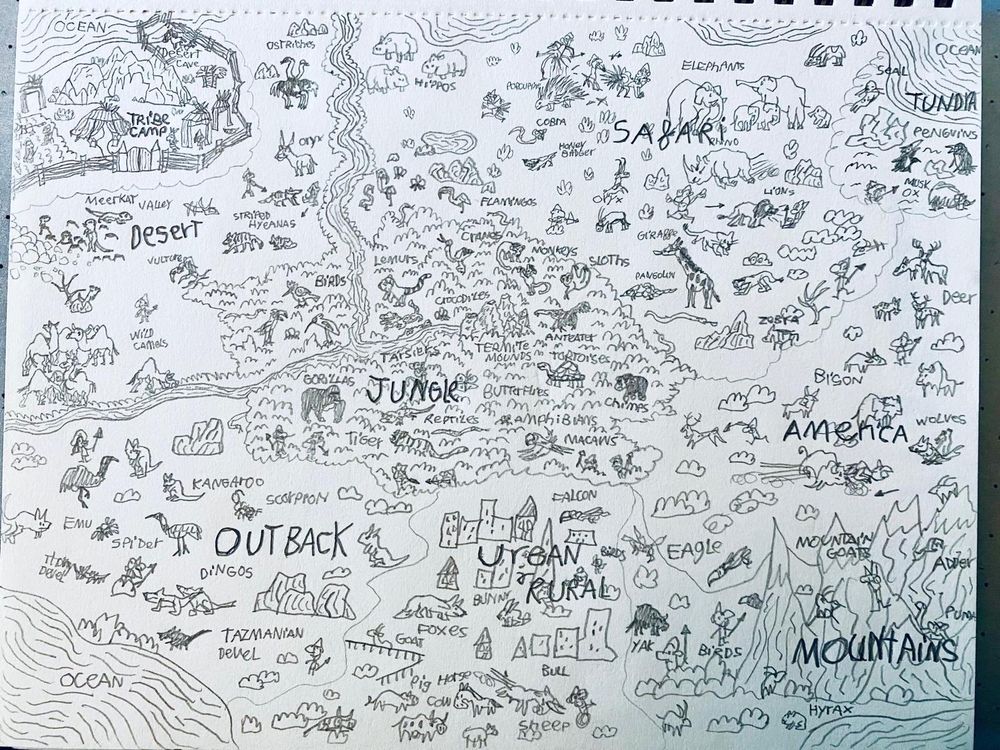 OCEAN
Desert
Cave
TRIBE
CAMP
OSTRICHES
HIPPOS
ORYX
PORCUPINE
COBRA
HONEY
BADGER
ELEPHANTS
SAFARI
RHINO
OCEAN
SEAL
TUNDRA
PENGUINS
MUSK
OX
MEERKAT VALLEY
Desert
STRIPED
HYEANAS
VULTURE
WILD
CAMELS
FLAMINGOS
ORYX
LIONS
GIRAFFE
PANGOLIN
ZEBRA
Deer
BISON
AMERICA
WOLVES
CRANES
LEMURS
MONKEYS
SLOTHS
BIRDS
CROCODILES
TARSIERS
TERMITE
MOUNDS
ANTEATER
TORTOISES
GORILLAS
JUNGLE
BUTTERFLIES
CHIMPS
REPTILES & AMPHIBIANS
TIGER
MACAWS
KANGAROO
SCORPPION
EMU
SPIDER
OUTBACK
DINGOS
THORNY
DEVEL
TAZMANIAN
DEVEL
OCEAN
FALCON
URBAN
RURAL
BIRDS
BUNNY
FOXES
GOAT
PIG
HORSE
COW
BULL
SHEEP
EAGLE
YAK
BIRDS
MOUNTAIN
GOATS
ADDER
PUMA
MOUNTAINS
HYRAX